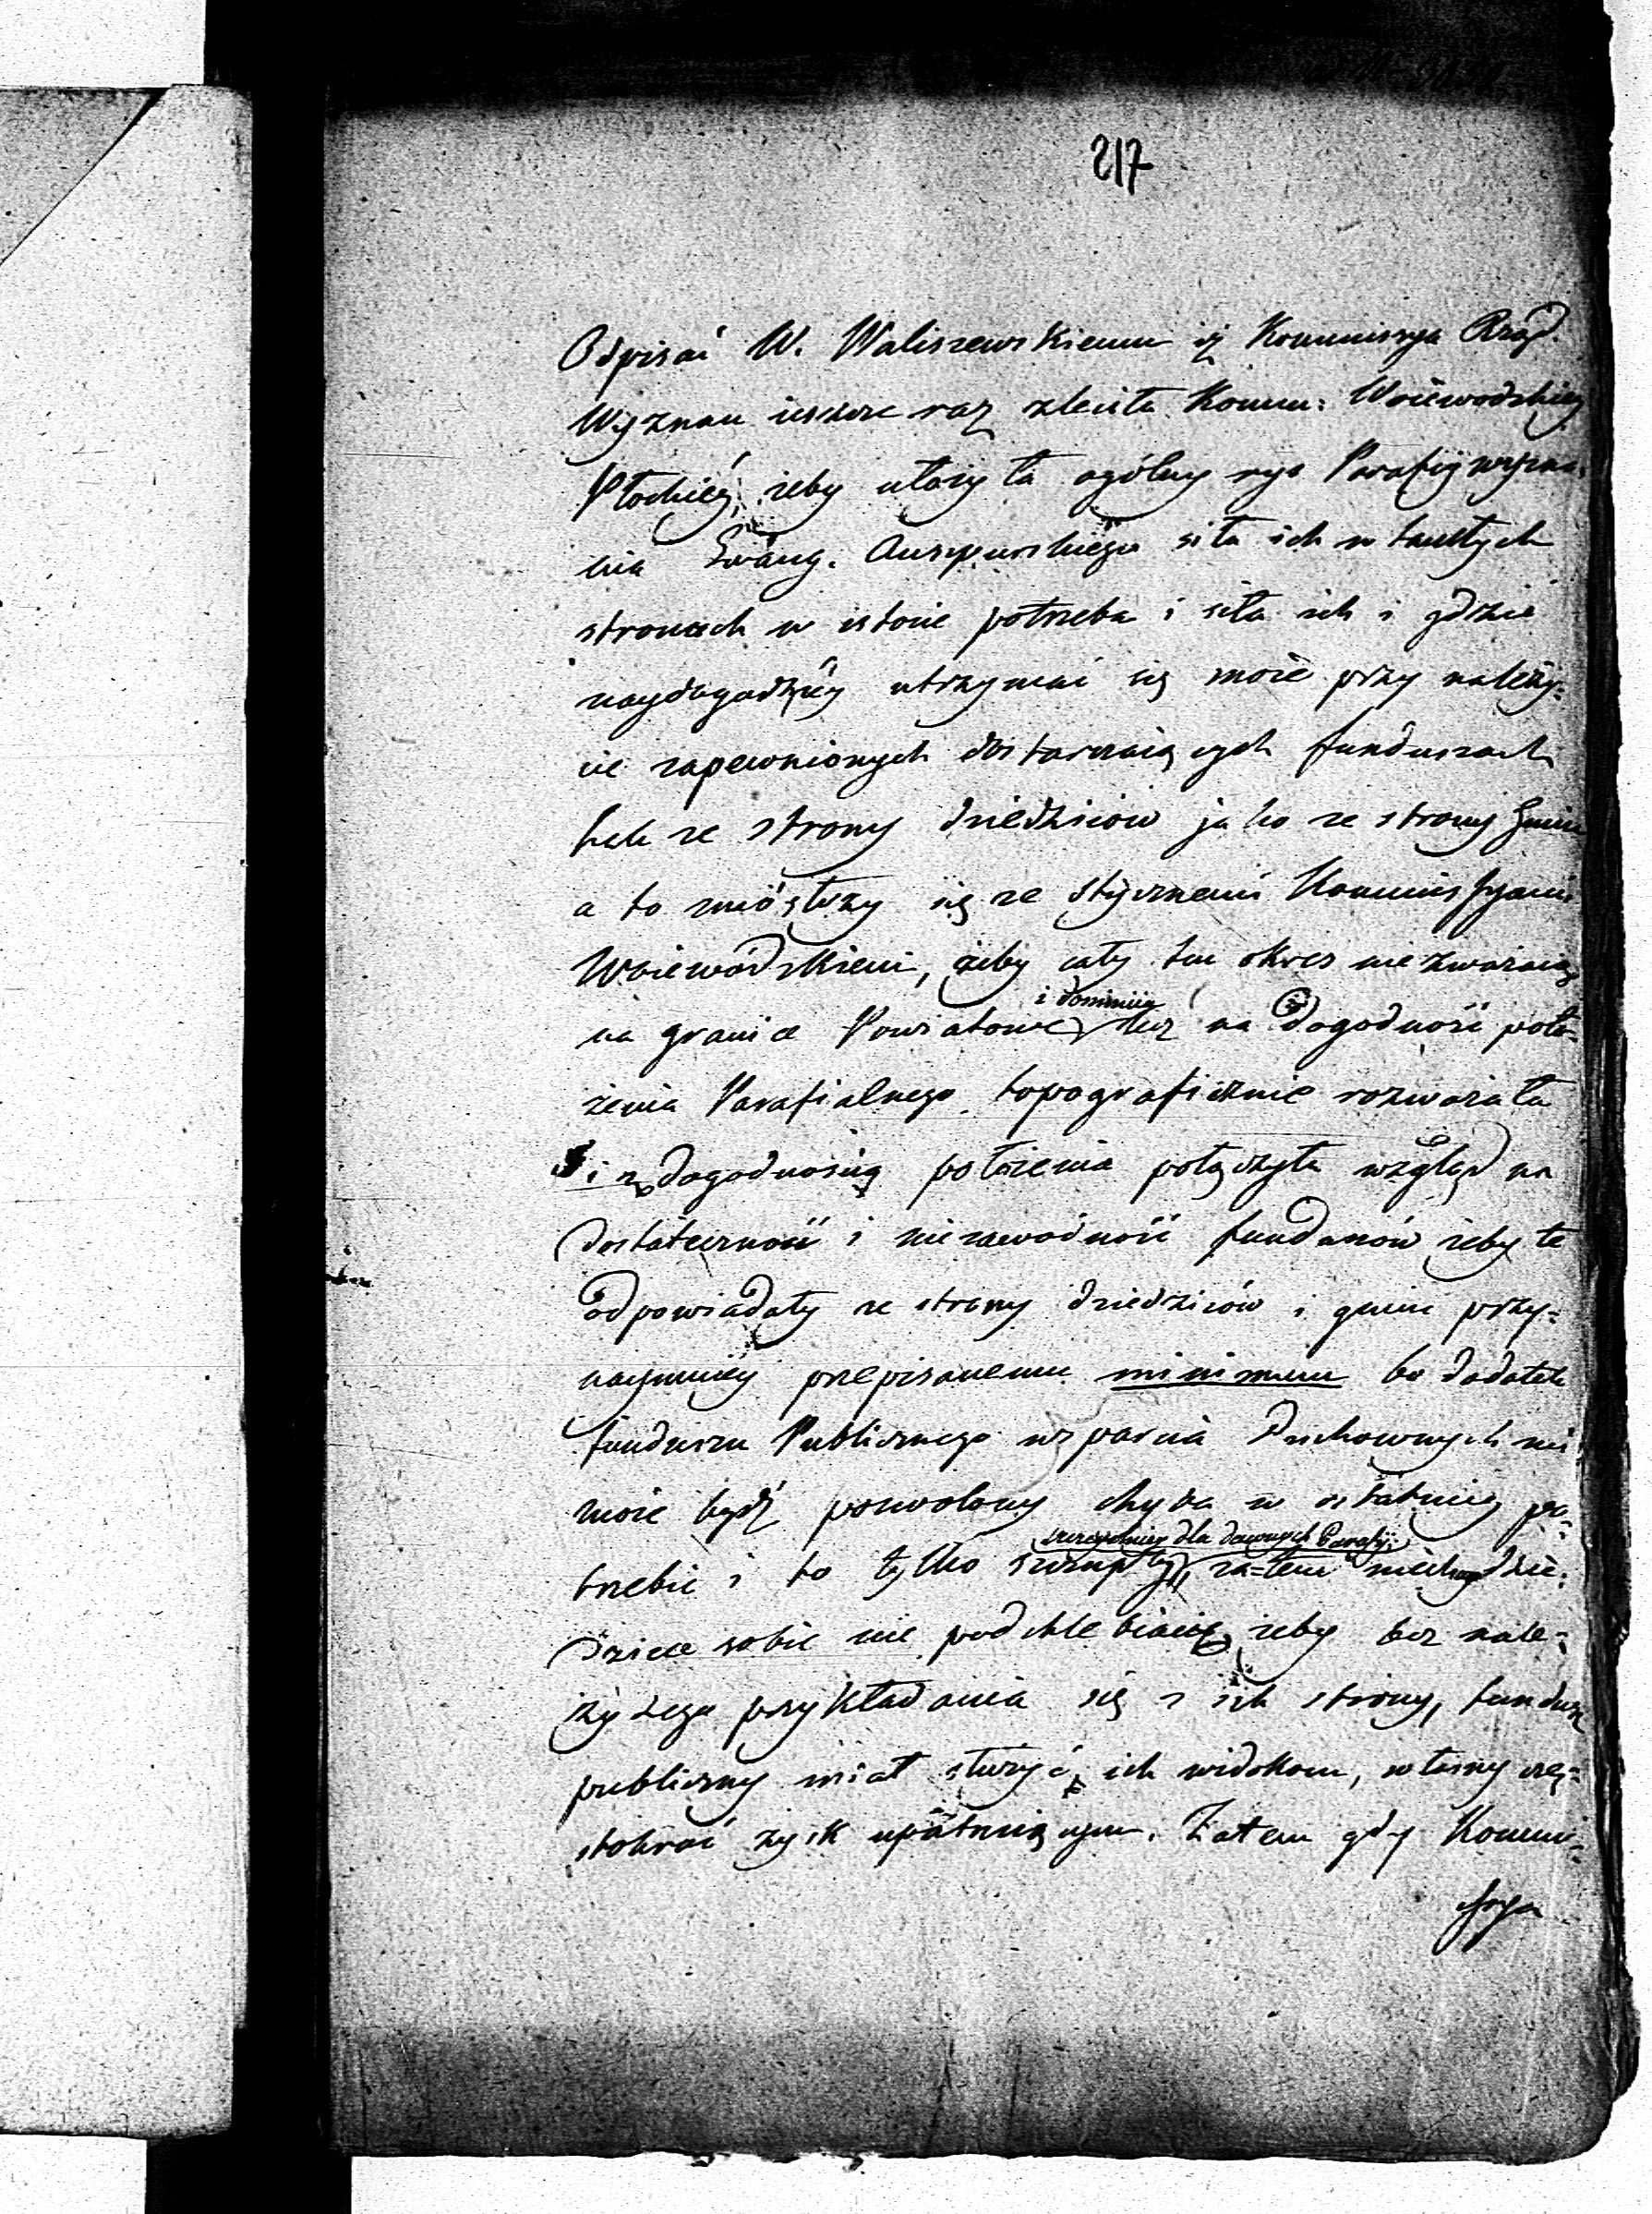 217
Odpisać W. Waliszewskiemu iż Kommissya Rząd.
Wyznań ieszcze raz zleciła Komm: Woiewodzkiey
Płockiey, żeby ułożyła ogólny rys Parafiy wyzna-
nia Ewang. Auszpurskiego siła ich w tamtych
stronach w istocie potrzeba i siła ich i gdzie
naydogodniey utrzymać się może przy należy-
cie zapewnionych dostarczaiących funduszach
tak ze strony dziedziców jako ze strony Gmin
a to zniósłszy się ze stycznemi Kommissyami
Woiewódzkiemi, żeby cały ten okres nie zważaiąc
i dominiia
na granice Powiatowe lecz na dogodność poło-
żenia Parafialnego topograficznie rozważała
i z dogodnością położenia połączyła wzgląd na
dostateczność i niezawodność funduszów żeby te
odpowiadały ze strony dziedziców i gmin przy-
naymniey przepisanemu minimum bo dodatek
funduszu Publicznego wsparcia Duchownych nie
może bydź pozwolony chyba w ostatniey po-
szczególniey dla dawnych Parafij
trzebie i to tylko szczupły, za-tem niech dzie-
dzice sobie nie podchlebiaią żeby bez nale-
żytego przykładania się z ich strony, fundusz
publiczny miał służyć ich widokom, własny czę-
stokroć zysk upatruiącym. Zatem gdy Kommi-
ssya